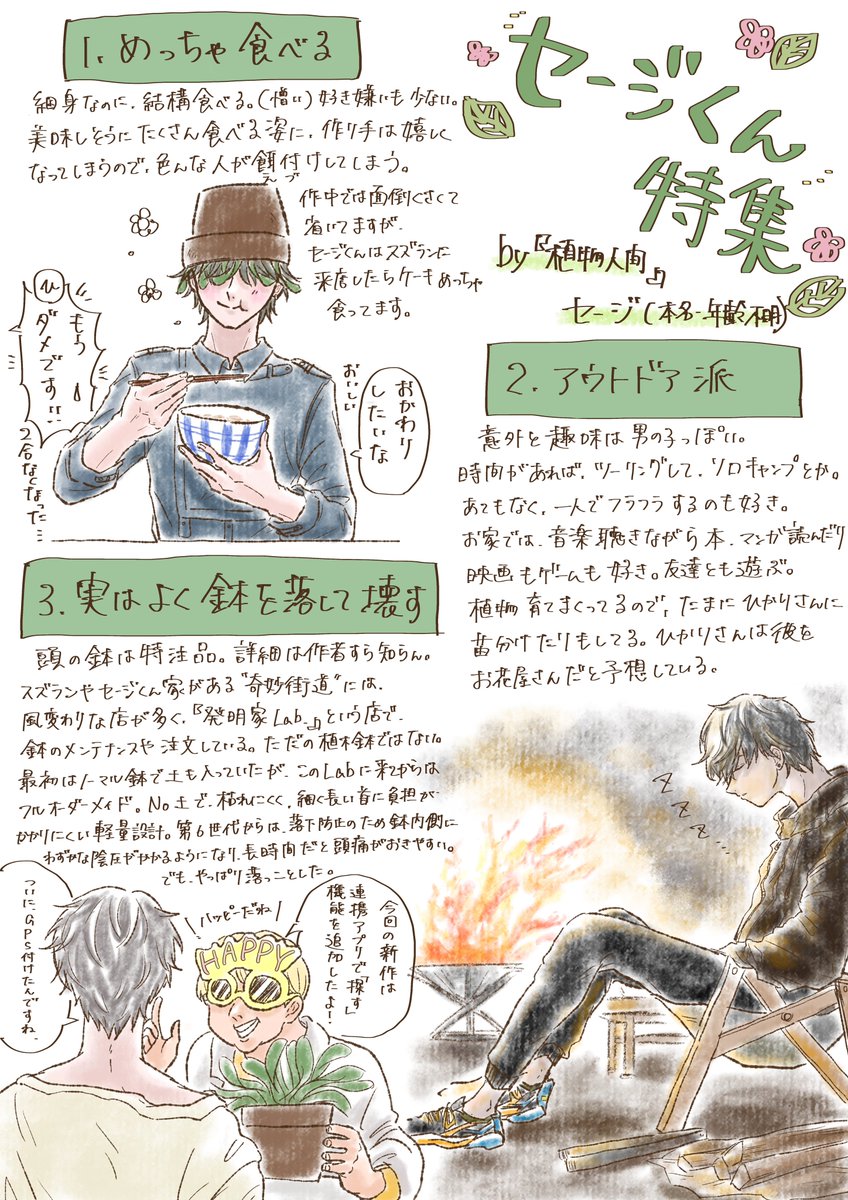 セージくん
特集
by『植物人間』
セージ(本名・年齢不明)
1. めっちゃ食べる
細身なのに、結構食べる。(憎い)好き嫌いも少ない。
美味しそうにたくさん食べる姿に、作り手は嬉しく
なってしまうので、色んな人が餌付けしてしまう。
えづ
作中では面倒くさくて
省いてますが、
セージくんはスズランに
来店したらケーキめっちゃ
食ってます。
おかわり
したいな
おいしい
ひ
もう
ダメです!!
2合なくなった…
2. アウトドア派
意外と趣味は男の子っぽい。
時間があれば、ツーリングして、ソロキャンプとか。
あてもなく、一人でフラフラするのも好き。
お家では、音楽聴きながら本、マンガ読んだり
映画もゲームも好き。友達とも遊ぶ。
植物育てまくってるので、たまにひかりさんに
苗分けたりもしてる。ひかりさんは彼を
お花屋さんだと予想している。
zzz...
3. 実はよく鉢を落して壊す
頭の鉢は特注品。詳細は作者すら知らん。
スズランやセージくん家がある"奇妙街道"には、
風変わりな店が多く、『発明家Lab.』という店で、
鉢のメンテナンスや注文している。ただの植木鉢ではない。
最初はノーマル鉢で土も入っていたが、このLabに来てからは
フルオーダーメイド。No土で、枯れにくく、細く長い首に負担が
かかりにくい軽量設計。第6世代からは、落下防止のため鉢内側に
わずかな陰圧がかかるようになり、長時間だと頭痛がおきやすい。
でも、やっぱり落っことした。
今回の新作は
連携アプリで「探す」
機能を追加したよ!
ハッピーだね
HAPPY
ついに、GPS付けたんですね、